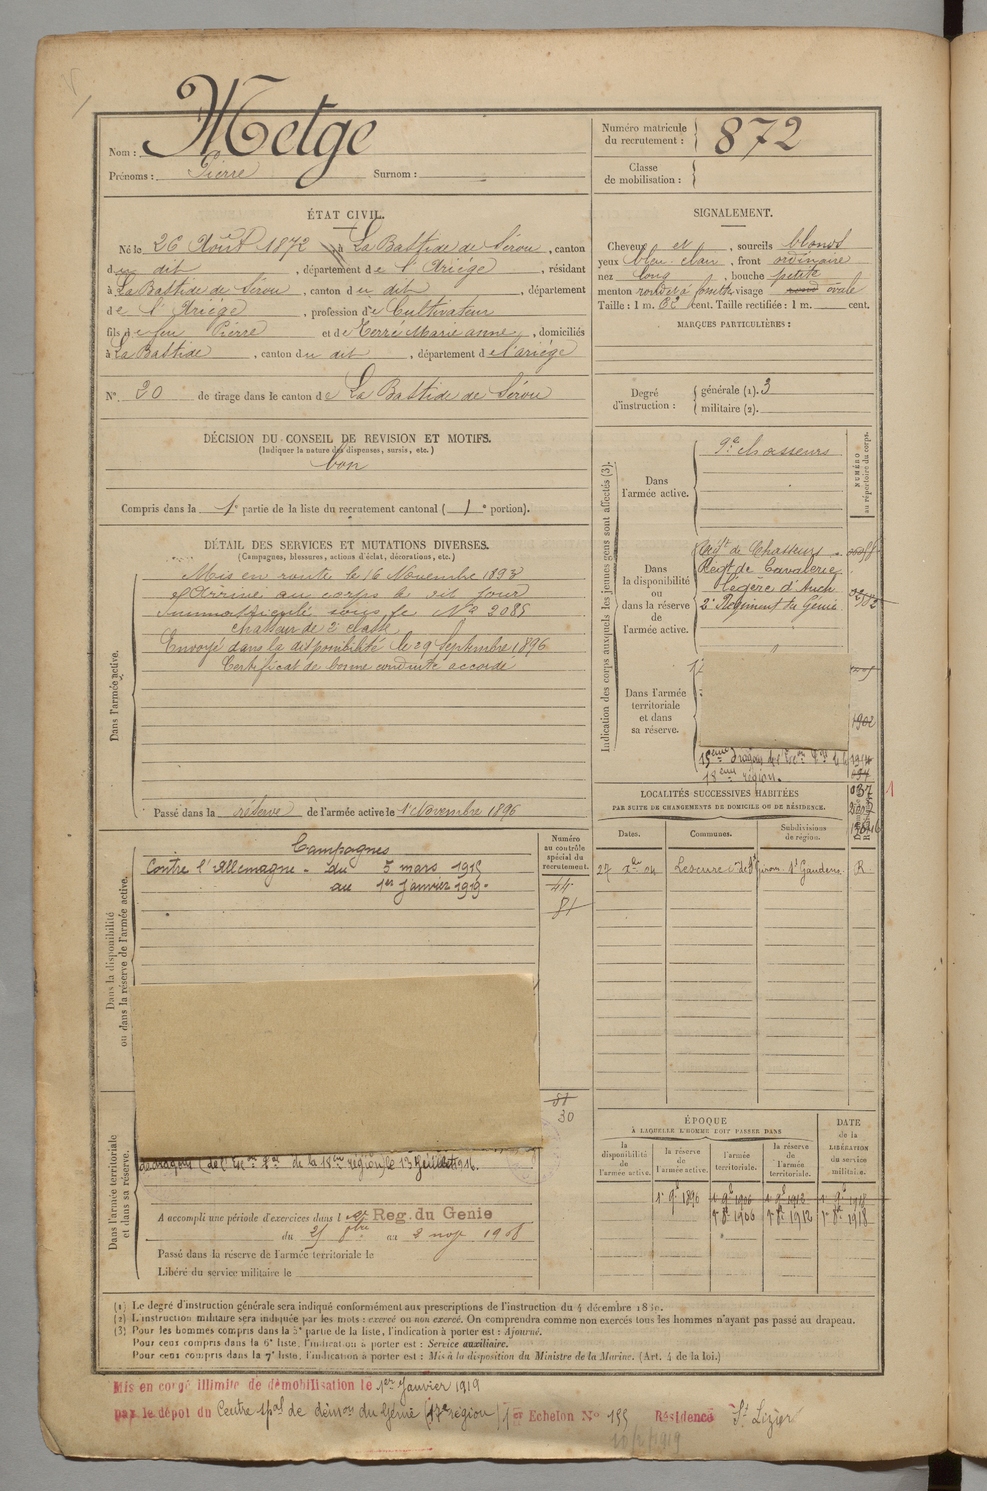 Nom : Metge
Prénoms : Pierre Surnom :
Numéro matricule du recrutement : 872
Classe de mobilisation :
ÉTAT CIVIL.
Né le 26 Août 1872 à La Bastide de Sérou, canton
du dit, département de l'Ariége, résidant
à La Bastide de Sérou, canton du dit, département
de l'Ariége, profession de Cultivateur
fils de feu Pierre et de Terré Marie anne, domiciliés
à La Bastide, canton du dit, département de l'ariége
N° 30 de tirage dans le canton de La Bastide de Sérou
SIGNALEMENT.
Cheveux et, sourcils blonds
yeux bleu clair, front ordinaire
nez long, bouche petite
menton rond à fossette visage ovale
Taille : 1 m. 62 cent. Taille rectifiée : 1 m. cent.
MARQUES PARTICULIÈRES :
Degré d'instruction : générale (1). 3
militaire (2).
DÉCISION DU CONSEIL DE REVISION ET MOTIFS.
(Indiquer la nature des dispenses, sursis, etc.)
bon
Compris dans la 1e partie de la liste du recrutement cantonal ( 1e portion).
DÉTAIL DES SERVICES ET MUTATIONS DIVERSES.
(Campagnes, blessures, actions d'éclat, décorations, etc.)
Dans l'armée active.
Mis en route le 16 Novembre 1893
Arrivé au corps le dit jour
Immatriculé sous le No 2085
chasseur de 2e classe
Envoyé dans la disponibilité le 29 Septembre 1896
Certificat de bonne conduite accordé
Passé dans la réserve de l'armée active le 1e Novembre 1896
Indication des corps auxquels les jeunes gens sont affectés (3).
NUMÉRO au répertoire du corps.
Dans l'armée active.
9e chasseurs
Dans la disponibilité ou dans la réserve de l'armée active.
Regt de Chasseurs
Regt de Cavalerie
légère d'Auch
2e Régiment du Génie
Dans l'armée territoriale et dans sa réserve.
1902
18ème région.
Dans la disponibilité ou dans la réserve de l'armée active.
Campagnes
Contre l'Allemagne - du 5 mars 1915
au 1er Janvier 1919.
Numéro au contrôle spécial du recrutement.
44
81
81
30
LOCALITÉS SUCCESSIVES HABITÉES
PAR SUITE DE CHANGEMENTS DE DOMICILE OU DE RÉSIDENCE.
Dates. Communes. Subdivisions de région.
27 Xbre 04 Lescure c. de St Girons St Gaudens. R
ÉPOQUE
À LAQUELLE L'HOMME DOIT PASSER DANS
DATE de la LIBÉRATION du service militaire.
la disponibilité de l'armée active. la réserve de l'armée active. l'armée territoriale. la réserve de l'armée territoriale.
1e 9bre 1896 1e 9bre 1906 1e 9bre 1912 1e 9bre 1918
1e 8bre 1906 1e 8bre 1912 1e 8bre 1918
Dans l'armée territoriale et dans sa réserve.
de la 18ème région, le 13 Juillet 1916.
A accompli une période d'exercices dans le 2e Reg. du Genie
du 21 8bre au 2 nov. 1908
Passé dans la réserve de l'armée territoriale le
Libéré du service militaire le
(1) Le degré d'instruction générale sera indiqué conformément aux prescriptions de l'instruction du 4 décembre 1889.
(2) L'instruction militaire sera indiquée par les mots : exercé ou non exercé. On comprendra comme non exercés tous les hommes n'ayant pas passé au drapeau.
(3) Pour les hommes compris dans la 5e partie de la liste, l'indication à porter est : Ajourné.
Pour ceux compris dans la 6e liste, l'indication à porter est : Service auxiliaire.
Pour ceux compris dans la 7e liste, l'indication à porter est : Mis à la disposition du Ministre de la Marine. (Art. 4 de la loi.)
Mis en congé illimité de démobilisation le 1er Janvier 1919
par le dépôt du Centre spal de démon du Génie (17e région) 1er Echelon No 155 Résidence St Lizier